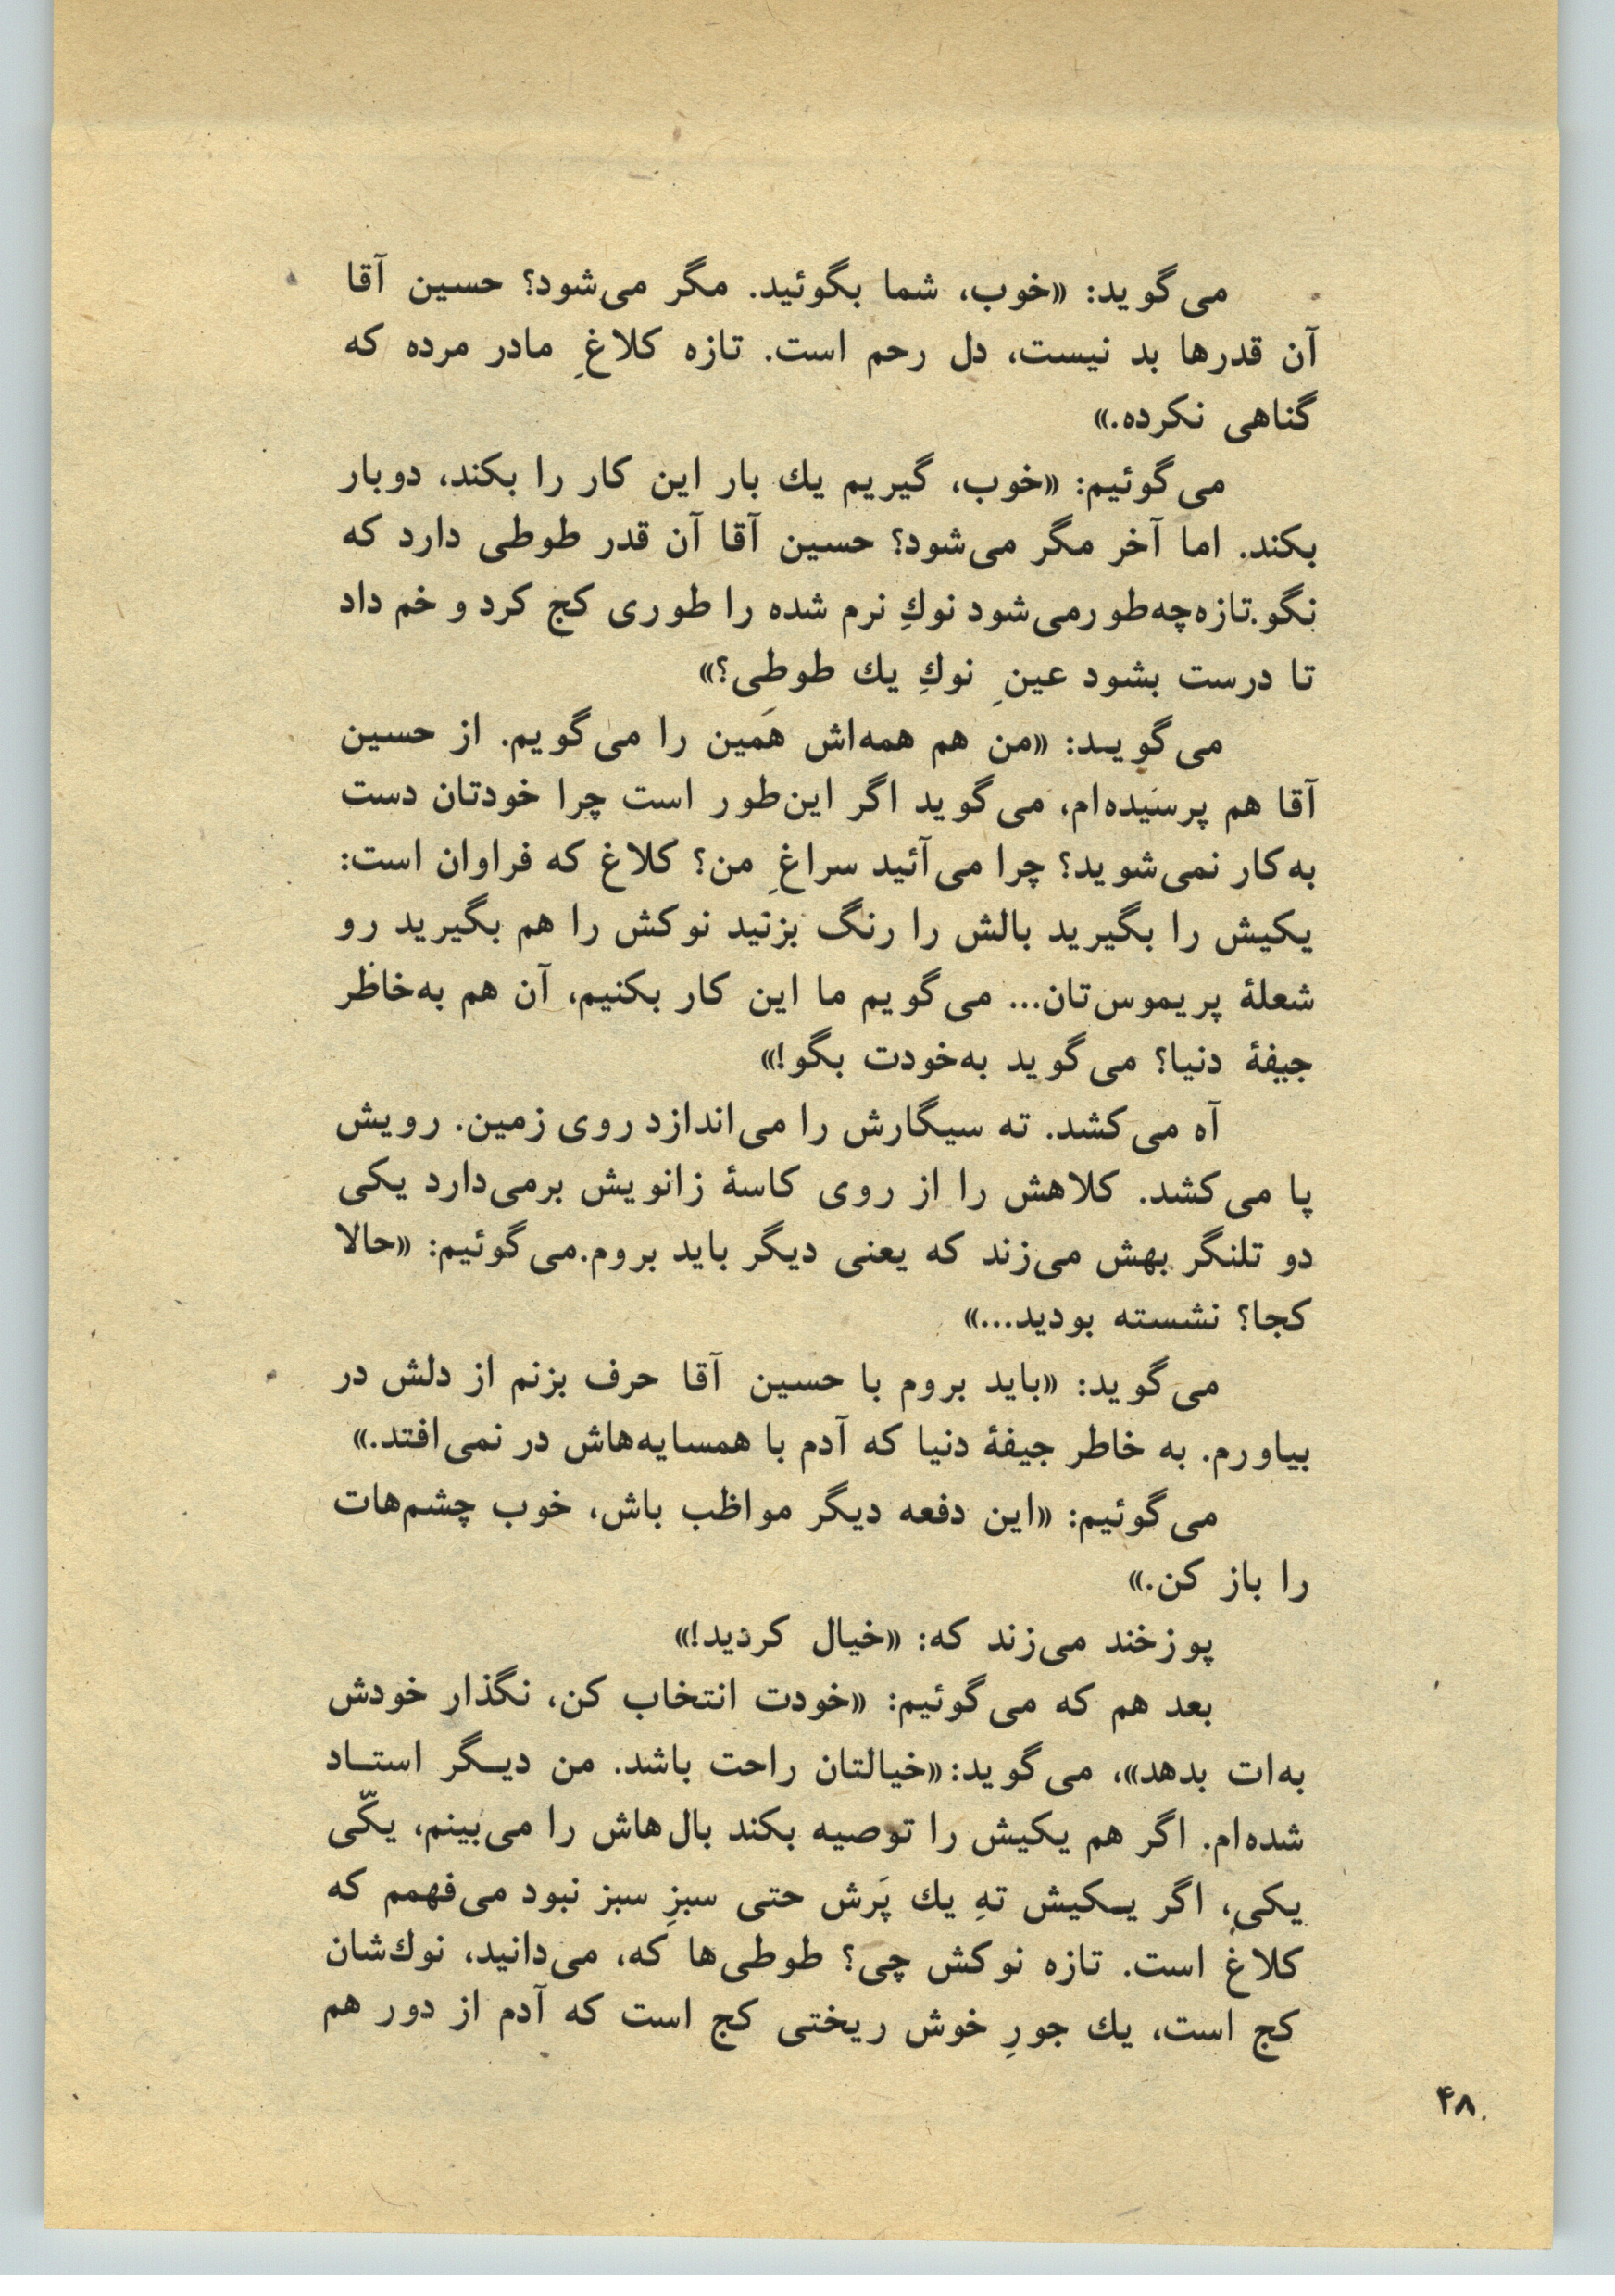 می‌گوید: «خوب، شما بگوئید. مگر می‌شود؟ حسین آقا
آن قدرها بد نیست، دل رحم است. تازه کلاغِ مادر مرده که
گناهی نکرده.»
می‌گوئیم: «خوب، گیریم یك بار این کار را بکند، دوبار
بکند. اما آخر مگر می‌شود؟ حسین آقا آن قدر طوطی دارد که
نگو. تازه چه‌طور می‌شود نوكِ نرم شده را طوری کج کرد و خم داد
تا درست بشود عینِ نوكِ یك طوطی؟»
می‌گویـد: «من هم همه‌اش هَمین را می‌گویم. از حسین
آقا هم پرسیده‌ام، می‌گوید اگر این‌طور است چرا خودتان دست
به‌کار نمی‌شوید؟ چرا می‌آئید سراغِ من؟ کلاغ که فراوان است:
یکیش را بگیرید بالش را رنگ بزنید نوکش را هم بگیرید رو
شعلهٔ پریموس‌تان... می‌گویم ما این کار بکنیم، آن هم به‌خاطر
جیفهٔ دنیا؟ می‌گوید به‌خودت بگو!»
آه می‌کشد. ته سیگارش را می‌اندازد روی زمین. رویش
پا می‌کشد. کلاهش را از روی کاسهٔ زانویش برمی‌دارد یکی
دو تلنگر بهش می‌زند که یعنی دیگر باید بروم. می‌گوئیم: «حالا
کجا؟ نشسته بودید...»
می‌گوید: «باید بروم با حسین آقا حرف بزنم از دلش در
بیاورم. به خاطر جیفهٔ دنیا که آدم با همسایه‌هاش در نمی‌افتد.»
می‌گوئیم: «این دفعه دیگر مواظب باش، خوب چشم‌هات
را باز کن.»
پوزخند می‌زند که: «خیال کردید!»
بعد هم که می‌گوئیم: «خودت انتخاب کن، نگذار خودش
به‌ات بدهد»، می‌گوید: «خیالتان راحت باشد. من دیـگر استـاد
شده‌ام. اگر هم یکیش را توصیه بکند بال‌هاش را می‌بینم، یکّی
یکی، اگر یـکیش تهِ یك پَرش حتی سبزِ سبز نبود می‌فهمم که
کلاغ است. تازه نوکش چی؟ طوطی‌ها که، می‌دانید، نوك‌شان
کج است، یك جورِ خوش ریختی کج است که آدم از دور هم
۴۸